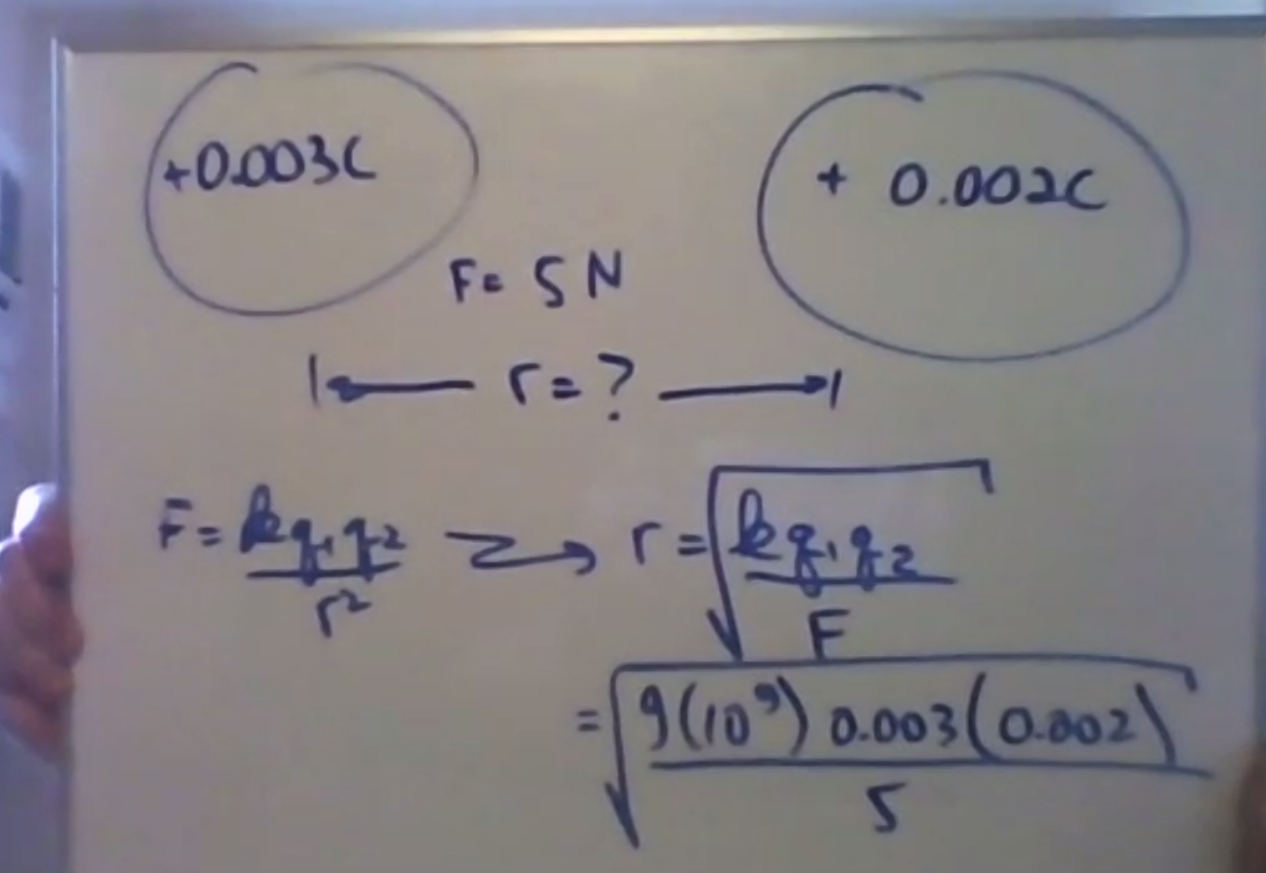 +0.003C
+ 0.002C
F= 5 N
r = ?
F = kq₁q₂/r² → r = √(kq₁q₂/F)
= √(9(10⁹) 0.003(0.002)/5)